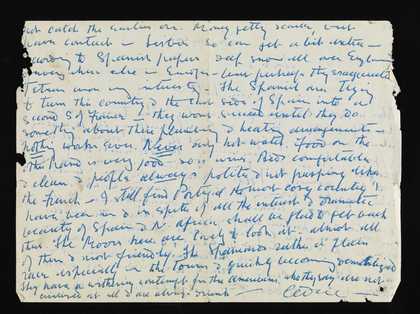 not catch the earlier one. Money pretty scarce, but
have contact - Lisbon so can get a bit extra -
according to Spanish papers deep snow all over England
& every where else in Europe - but perhaps they exaggerate
to turn this country & the coast side of Spain into a
second S. of France - they wont succeed until they do
something about their plumbing & heating arrangements -
nothing works ever. Never any hot water. Food on the
the hand is very good so is wine. Beds comfortable
& clean & people always polite & not grasping like
the French - I still find Portugal the most cosy country I
have been in & in spite of all the interest & dramatic
beauty of Spain & N. Africa shall be glad to get back
there. The Moors here are lovely to look at - almost all
of them & most friendly. The Spaniards rather a plain
race especially in the towns & quickly becoming
They have a withering contempt for the Americans who they say are not
cultured at all & are always drunk - Cedric -